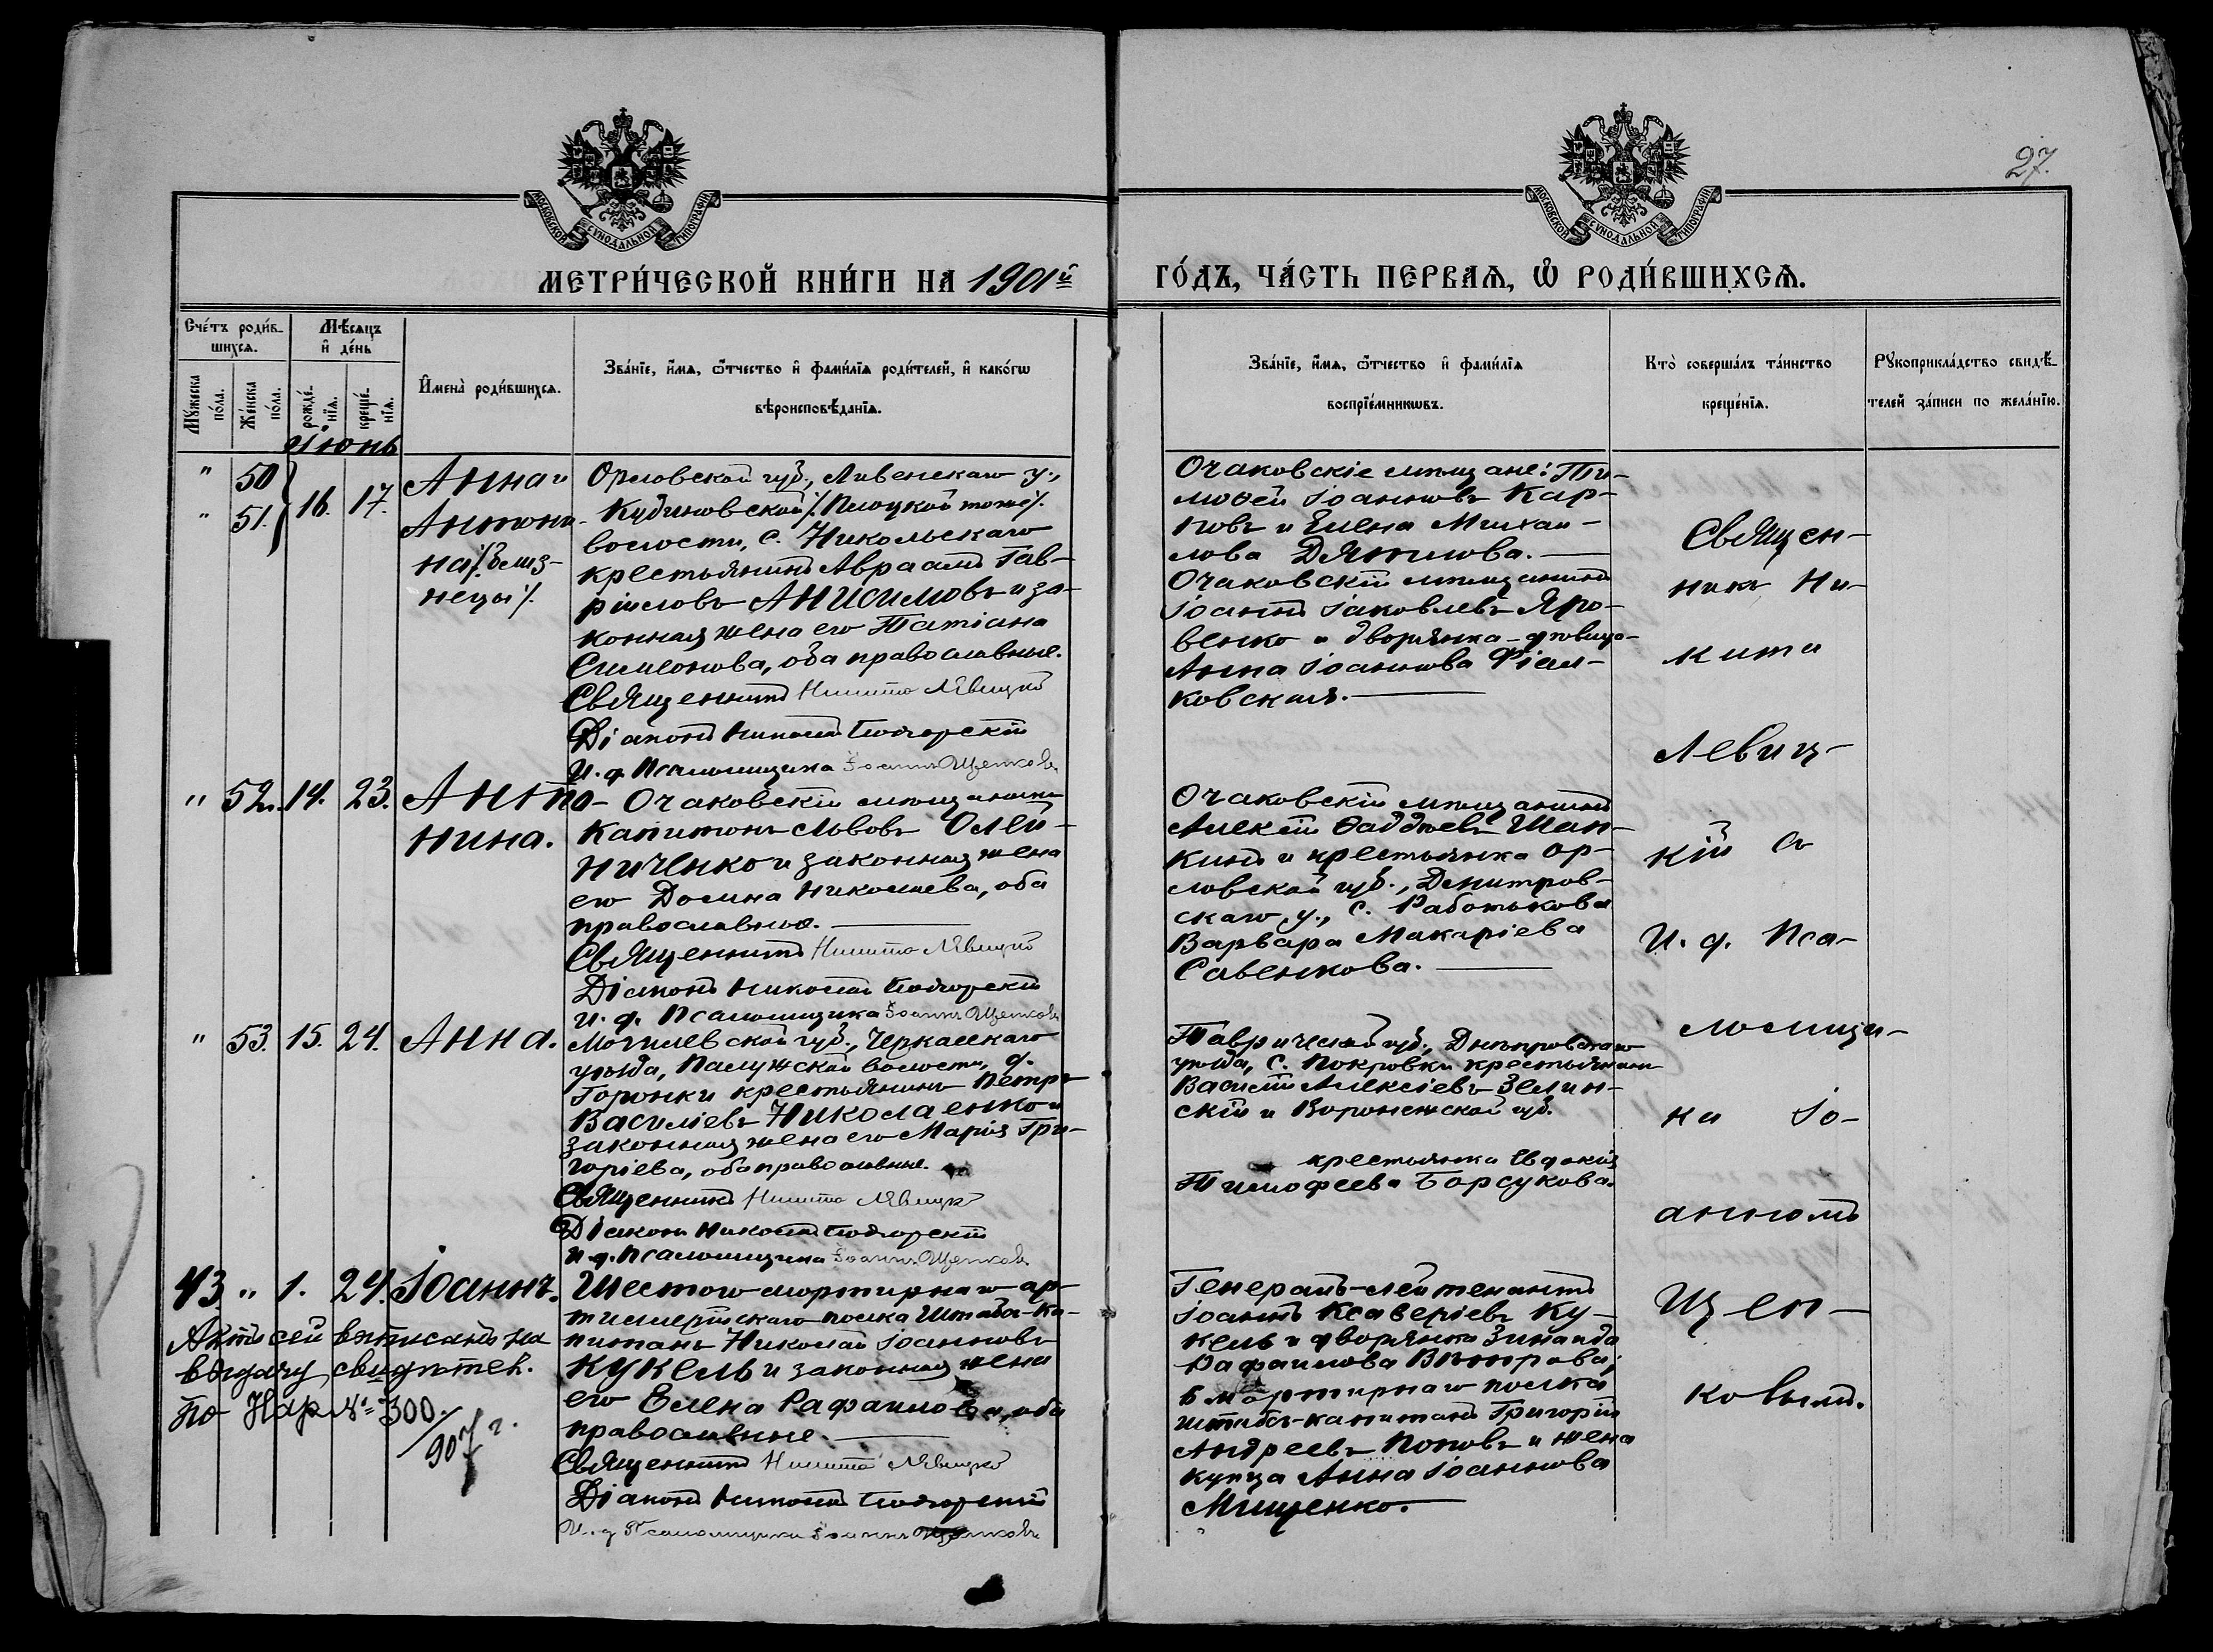 27.
МОСКОВСКОЙ СѴНОДАЛЬНОЙ ТИПОГРАФІИ
МОСКОВСКОЙ СѴНОДАЛЬНОЙ ТИПОГРАФІИ
МЕТРИ́ЧЕСКОЙ КНИ́ГИ НА 1901й
ГО́ДЪ, ЧА́СТЬ ПЕРВАѦ, Ѽ РОДИ́ВШИХСѦ.
Сче́тъ роди́в-
шихсѧ.
Мѣсѧцъ
и҆ де́нь
Мꙋ́жеска
по́ла.
Же́нска
по́ла.
рожде́-
нїѧ.
креще́-
нїѧ.
И҆мена̀ роди́вшихсѧ.
Зва́нїе, и҆́мѧ, ѻ҆́тчество и҆ фами́лїѧ роди́телей, и҆ како́гѡ
вѣроисповѣ́данїѧ.
Зва́нїе, и҆́мѧ, ѻ҆́тчество и҆ фами́лїѧ
воспрїе́мникѡвъ.
Кто̀ соверша́лъ та́инство
креще́нїѧ.
Рꙋкоприкла́дство свидѣ́-
телей за́писи по жела́нїю.
Июнь
" 50
" 51.
16. 17.
Анна и
Антони-
на /:близ-
нецы:/.
Орловской губ., Ливенскаго у.,
Кудиновской /:Плоцкой тож:/.
волости, с. Никольскаго
крестьянинъ Авраамъ Гав-
ріиловъ Анисимовъ и за-
конная жена его Татіана
Симеонова, оба православные.
Священникъ Никита Левицкій
Діаконъ Николай Подгорскій
И. д. Псаломщика Іоаннъ Щепковъ
Очаковскіе мѣщане: Ти-
мофей Іоанновъ Кар-
повъ и Елена Михаи-
лова Дятлова.
Очаковскій мѣщанинъ
Іоаннъ Іаковлевъ Яро-
венко и дворянка-дѣвица
Анна Іоаннова Фіал-
ковская.
" 52. 14. 23. Анто-
нина.
Очаковскій мѣщанинъ
Капитонъ Львовъ Олей-
ниченко и законная жена
его Домна Николаева, оба
православные.
Священникъ Никита Левицкій
Діаконъ Николай Подгорскій
И. д. Псаломщика Іоаннъ Щепковъ
Очаковскій мѣщанинъ
Алексій Ѳаддеевъ Шан-
кинъ и крестьянка Ор-
ловской губ., Дмитров-
скаго у., с. Работькова
Варвара Макаріева
Савенкова.
" 53. 15. 24. Анна.
Могилевской губ., Черкасскаго
уѣзда, Палужской волости, д.
Горонки крестьянинъ Петръ
Василіевъ Николаенко и
законная жена его Марія Гри-
горіева, оба православные.
Священникъ Никита Левицкій
Діаконъ Николай Подгорскій
И. д. Псаломщика Іоаннъ Щепковъ
Таврической губ., Днѣпровскаго
уѣзда, с. Покровки крестьянинъ
Василій Алексіевъ Зелин-
скій и Воронежской губ.
крестьянка Евдокія
Тимофеева Борсукова.
43 " 1. 24. Іоаннъ.
Актъ сей выписанъ на
выдачу свидѣтел.
по Нар. № 300.
907 г.
Шестого мортирнаго ар-
тиллерійскаго полка Штабсъ-Ка-
питанъ Николай Іоанновъ
Кукель и законная жена
его Елена Рафаилова, оба
православные.
Священникъ Никита Левицкій
Діаконъ Николай Подгорскій
И. д. Псаломщика Іоаннъ Щепковъ
Генералъ-лейтенантъ
Іоаннъ Ксаверіевъ Ку-
кель и дворянка Зинаида
Рафаилова Вѣтрова;
6 мортирнаго полка
штабсъ-капитанъ Григорій
Андреевъ Поповъ и жена
купца Анна Іоаннова
Мищенко.
Священ-
никъ Ни-
кита
Левиц-
кій съ
И. д. Пса-
ломщи-
ка Іо-
анномъ
Щеп-
ковымъ.